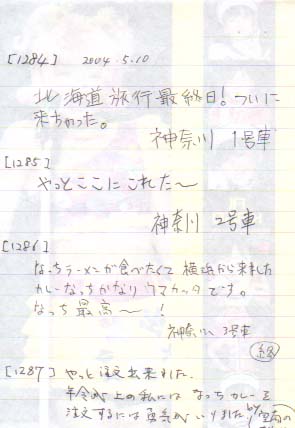 [1284] 2004.5.10
北海道旅行最終日!ついに
来ちゃった。
神奈川 1号車
[1285]
やっとここにこれた〜
神奈川 2号車
[1286]
なっちラーメンが食べたくて 横浜から来ました
カレーなっちかなりウマカッタです。
なっち最高〜!
神奈川 3号車
[1287] やっと注文出来ました。
年令が上の私には なっちカレーを
注文するには勇気がいりました